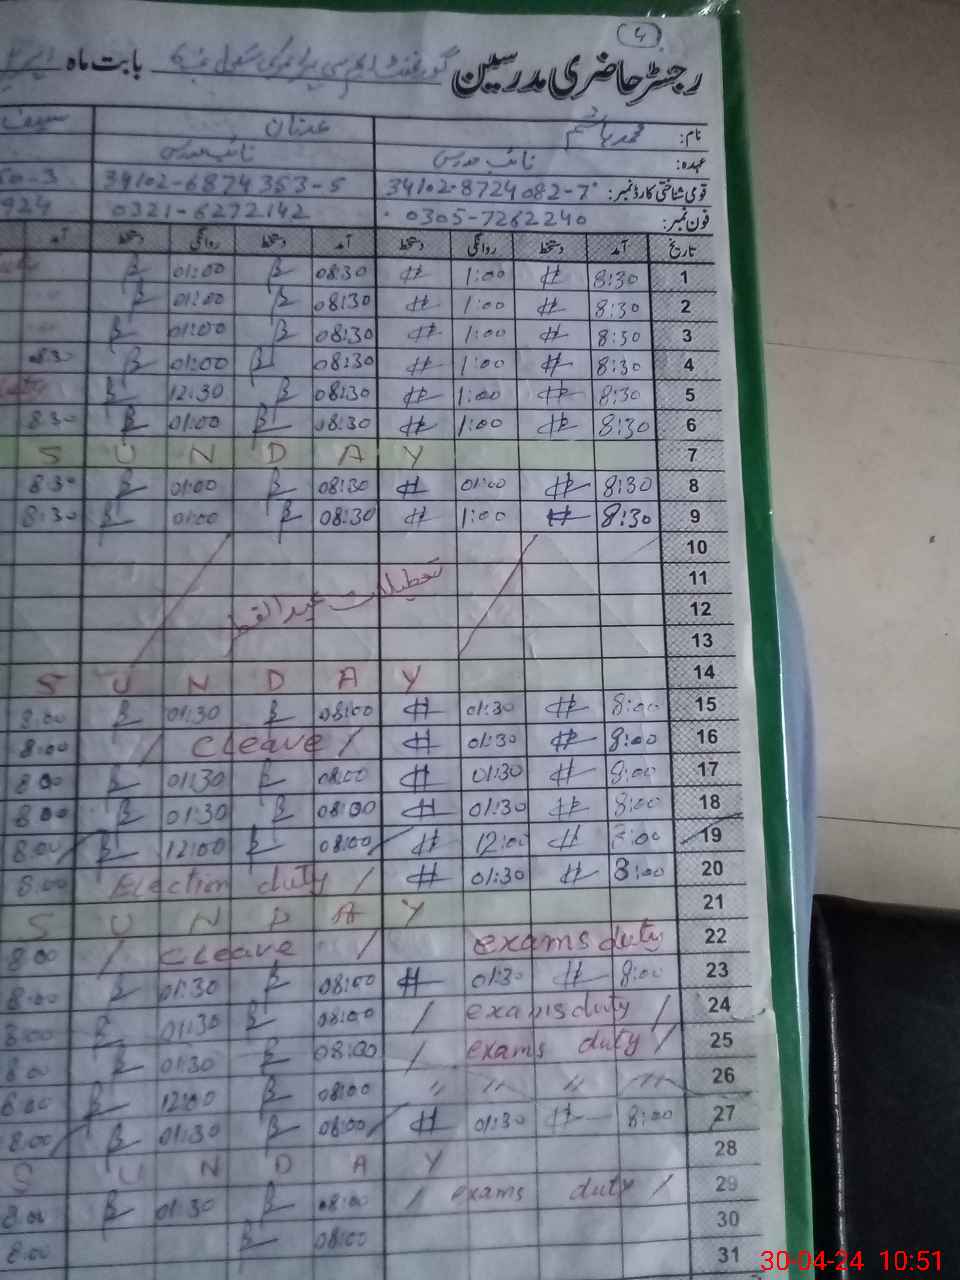 4
رجسٹر حاضری مدرسین گورنمنٹ ایم سی پرائمری سکول نمبر 6 بابت ماہ
نام: محمد ہاشم عدنان سیف
عہدہ: نائب مدرس نائب مدرس
قومی شناختی کارڈ نمبر: 34102-8724082-7 34102-6874353-5
فون نمبر: 0305-7262240 0321-6272142 924
تاریخ آمد دستخط روانگی دستخط آمد دستخط روانگی دستخط آمد
1 8:30 1:00 08:30 01:00
2 8:30 1:00 08:30 01:00
3 8:30 1:00 08:30 01:00
4 8:30 1:00 08:30 01:00 08:30
5 8:30 1:00 08:30 12:30
6 8:30 1:00 08:30 01:00 8:30
7 S U N D A Y
8 8:30 01:00 08:30 01:00 8:30
9 8:30 1:00 08:30 01:00 8:30
10
11 تعطیلات عیدالفطر
12
13
14 S U N D A Y
15 8:00 01:30 08:00 01:30 8:00
16 8:00 01:30 / cleave / 8:00
17 8:00 01:30 08:00 01:30 8:00
18 8:00 01:30 08:00 01:30 8:00
19 8:00 12:00 08:00 12:00 8:00
20 8:00 01:30 Election duty / 8:00
21 S U N D A Y
22 exams duty / cleave / 8:00
23 8:00 01:30 08:00 01:30 8:00
24 / exams duty / 08:00 01:30 8:00
25 / exams duty / 08:00 01:30 8:00
26 〃 〃 〃 〃 08:00 12:00 8:00
27 8:00 01:30 08:00 01:30 8:00
28 S U N D A Y
29 / exams duty / 08:00 01:30 8:00
30 08:00 8:00
31
30-04-24 10:51